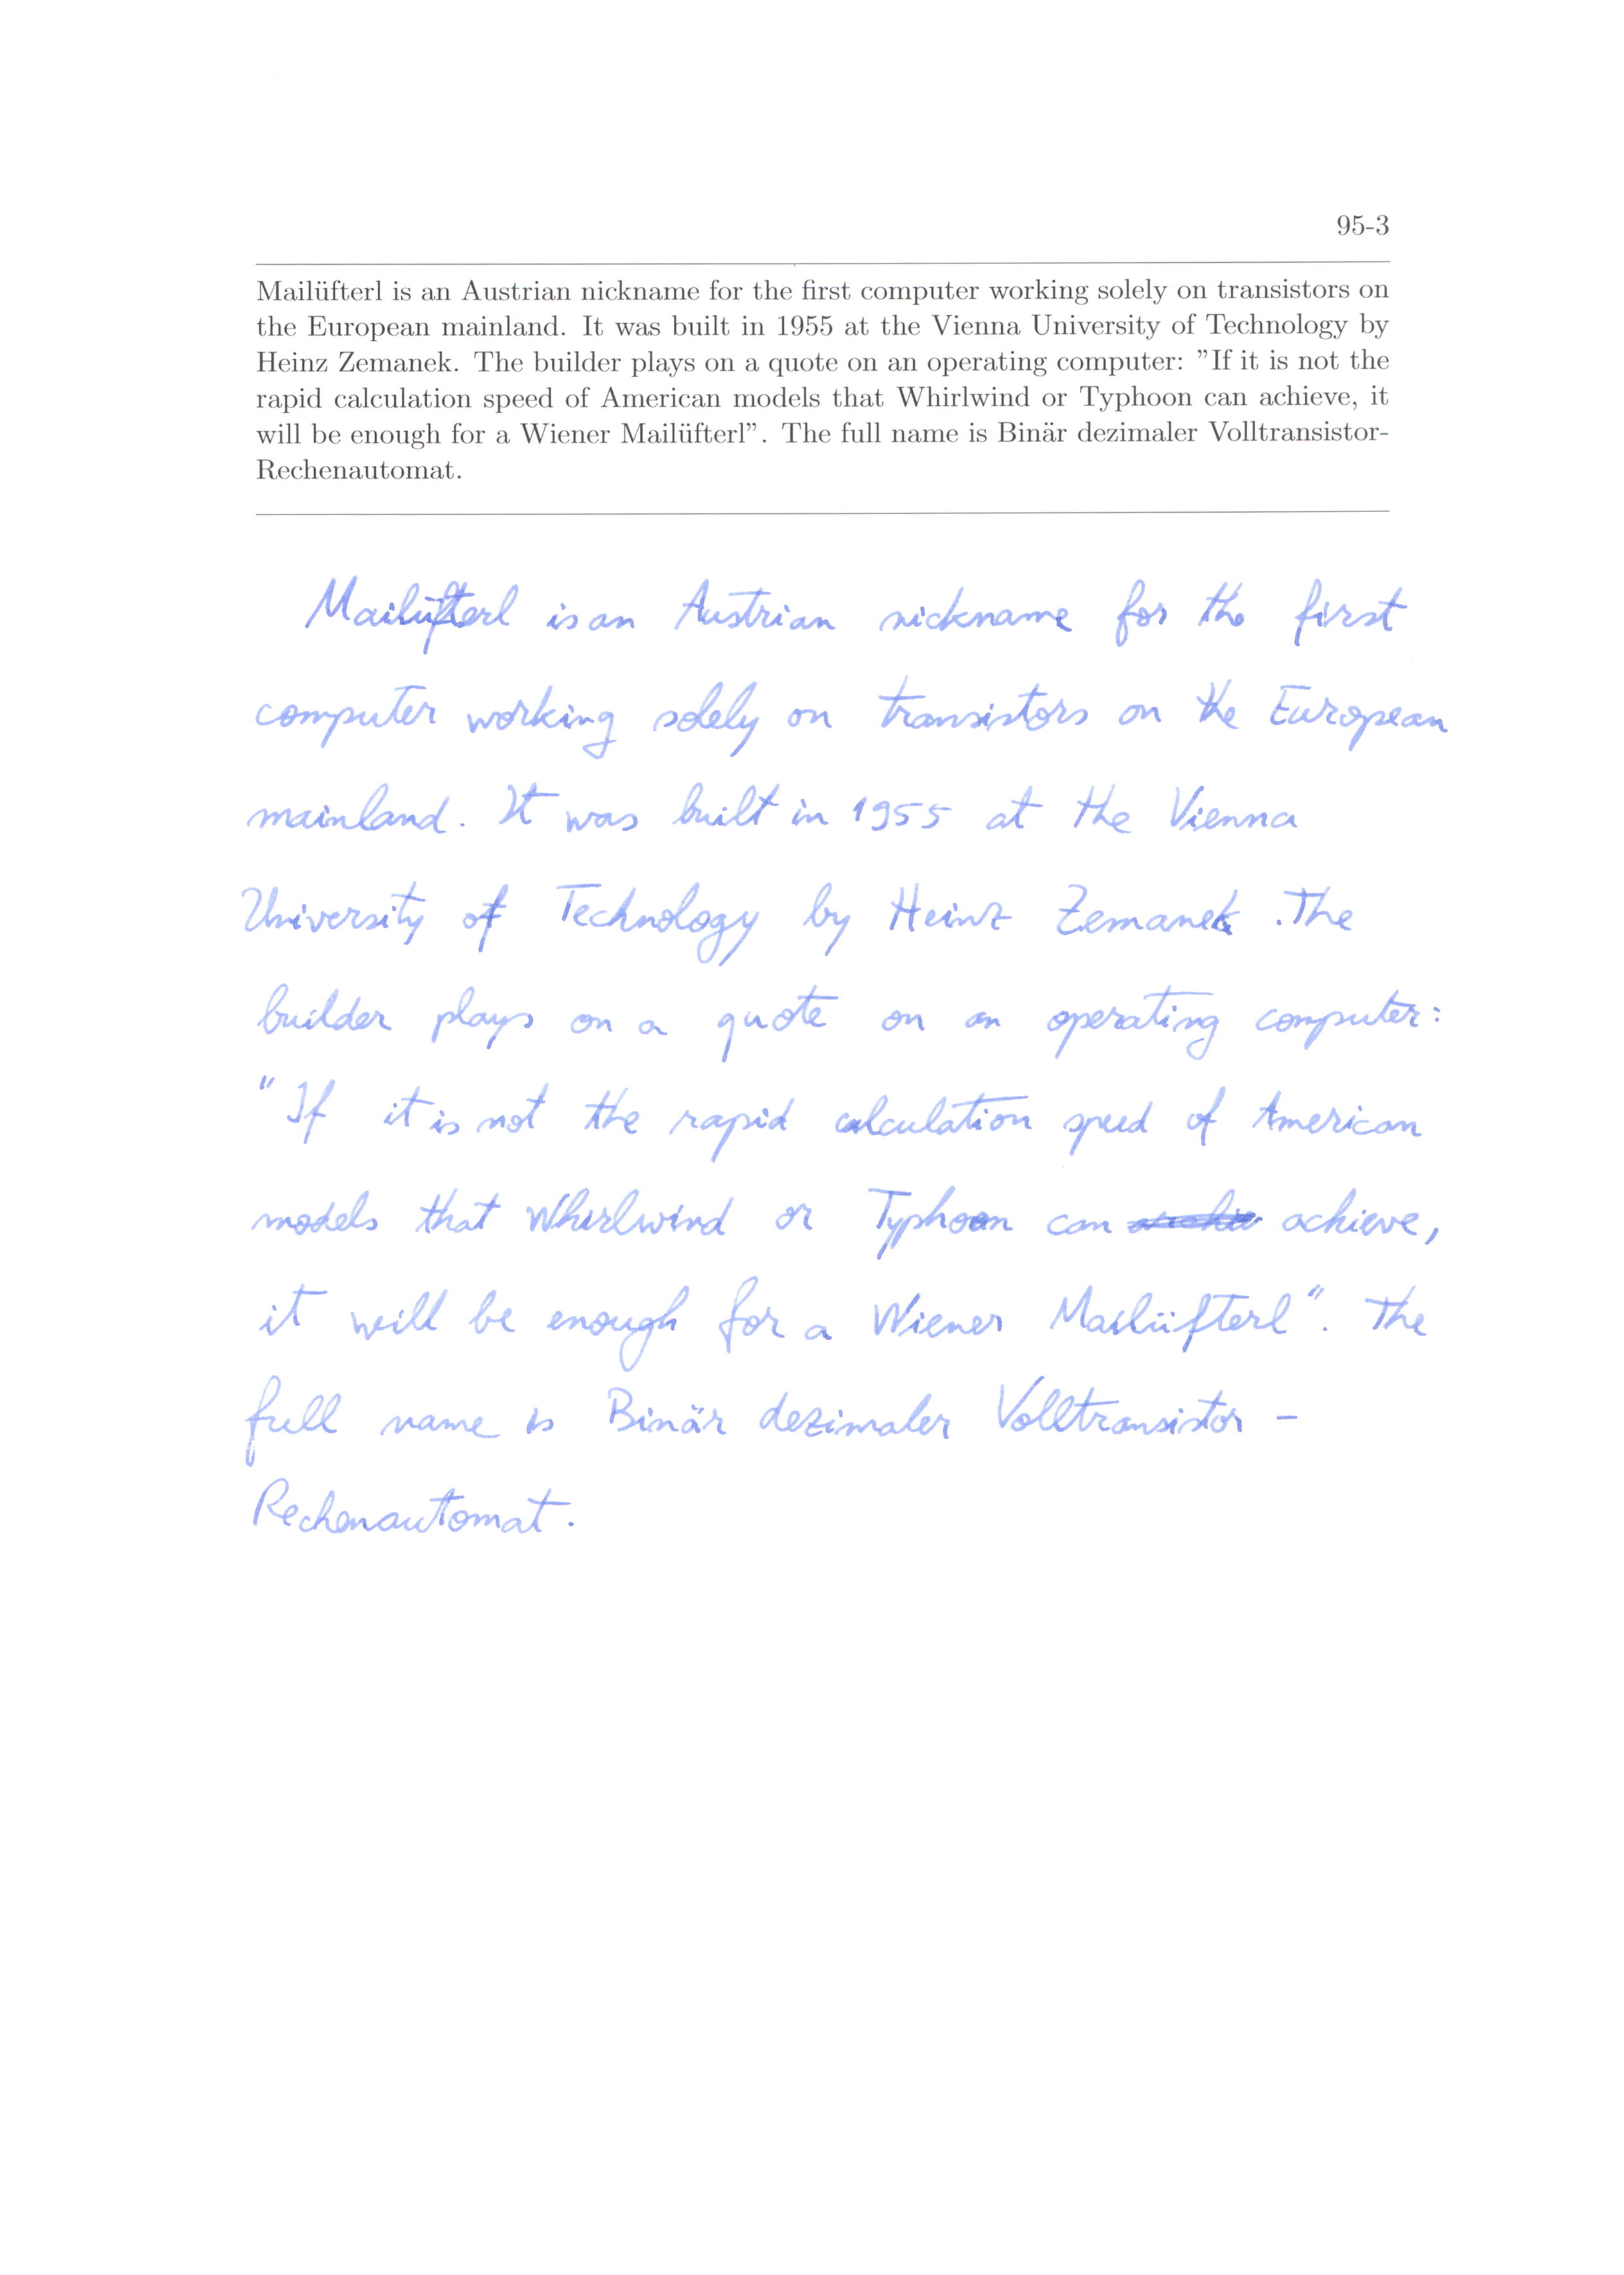 95-3
Mailüfterl is an Austrian nickname for the first computer working solely on transistors on
the European mainland. It was built in 1955 at the Vienna University of Technology by
Heinz Zemanek. The builder plays on a quote on an operating computer: "If it is not the
rapid calculation speed of American models that Whirlwind or Typhoon can achieve, it
will be enough for a Wiener Mailüfterl". The full name is Binär dezimaler Volltransistor-
Rechenautomat.
Mailüfterl is an Austrian nickname for the first
computer working solely on transistors on the European
mainland. It was built in 1955 at the Vienna
University of Technology by Heinz Zemanek. The
builder plays on a quote on an operating computer:
"If it is not the rapid calculation speed of American
models that Whirlwind or Typhoon can achieve,
it will be enough for a Wiener Mailüfterl". The
full name is Binär dezimaler Volltransistor-
Rechenautomat.